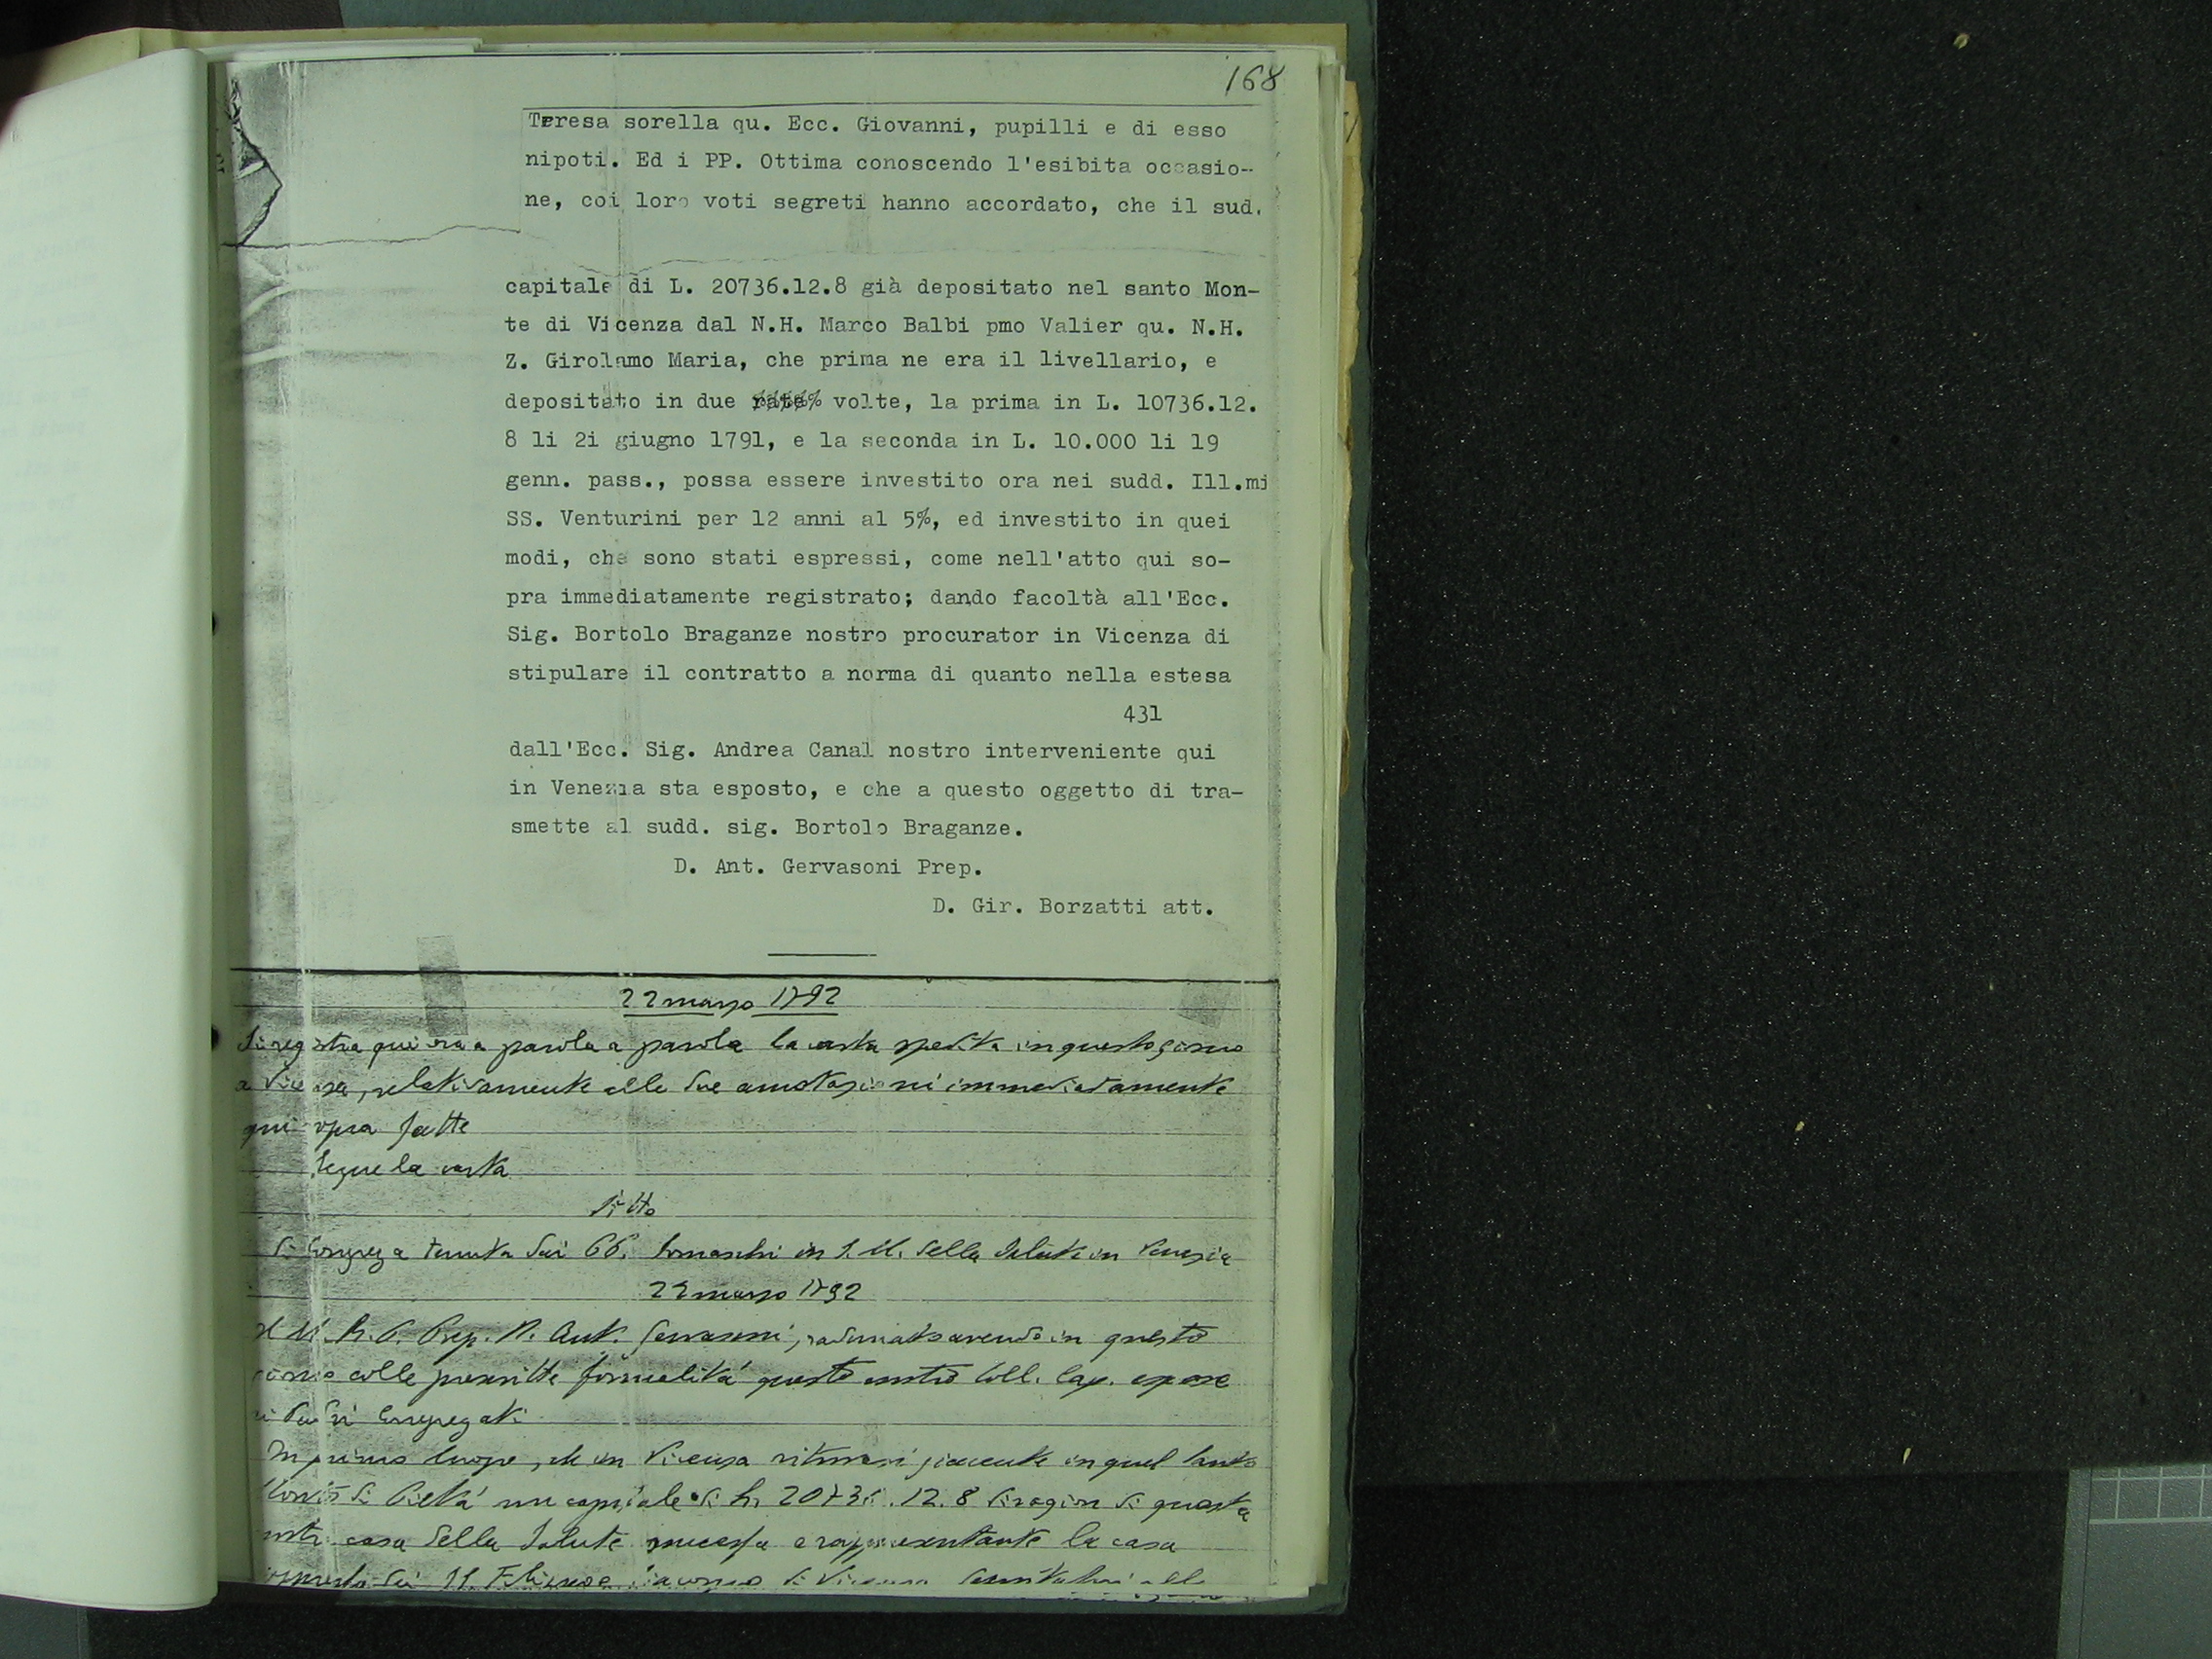 168
Teresa sorella qu. Ecc. Giovanni, pupilli e di esso
nipoti. Ed i PP. Ottima conoscendo l'esibita occasio-
ne, coi loro voti segreti hanno accordato, che il sud.
capitale di L. 20736.12.8 già depositato nel santo Mon-
te di Vicenza dal N.H. Marco Balbi pmo Valier qu. N.H.
Z. Girolamo Maria, che prima ne era il livellario, e
depositato in due volte, la prima in L. 10736.12.
8 li 2i giugno 1791, e la seconda in L. 10.000 li 19
genn. pass., possa essere investito ora nei sudd. Ill.mi
SS. Venturini per 12 anni al 5%, ed investito in quei
modi, che sono stati espressi, come nell'atto qui so-
pra immediatamente registrato; dando facoltà all'Ecc.
Sig. Bortolo Braganze nostro procurator in Vicenza di
stipulare il contratto a norma di quanto nella estesa
431
dall'Ecc. Sig. Andrea Canal nostro interveniente qui
in Venezia sta esposto, e che a questo oggetto di tra-
smette al sudd. sig. Bortolo Braganze.
D. Ant. Gervasoni Prep.
D. Gir. Borzatti att.
22 marzo 1792
Si registra qui ora a parola a parola la carta spedita in questo giorno
a Vicenza, relativamente alle due annotazioni immediatamente
qui sopra fatte
Segue la carta
Ditto
Congrega tenuta dai PP. Somaschi in S. M. della Salute in Venezia
22 marzo 1792
Il M. R. P. Prep. D. Ant. Gervasoni, radunato avendo in questo
giorno colle prescritte formalità questo nostro Coll. Cap. espose
ai Padri Congregati
In primo luogo, che in Vicenza ritrovasi giacente in quel Santo
Monte di Pietà un capitale di L. 20736.12.8 di ragion di questa
nostra casa della Salute successa e rappresentante la casa
dei SS. Filippo e Giacomo di Vicenza